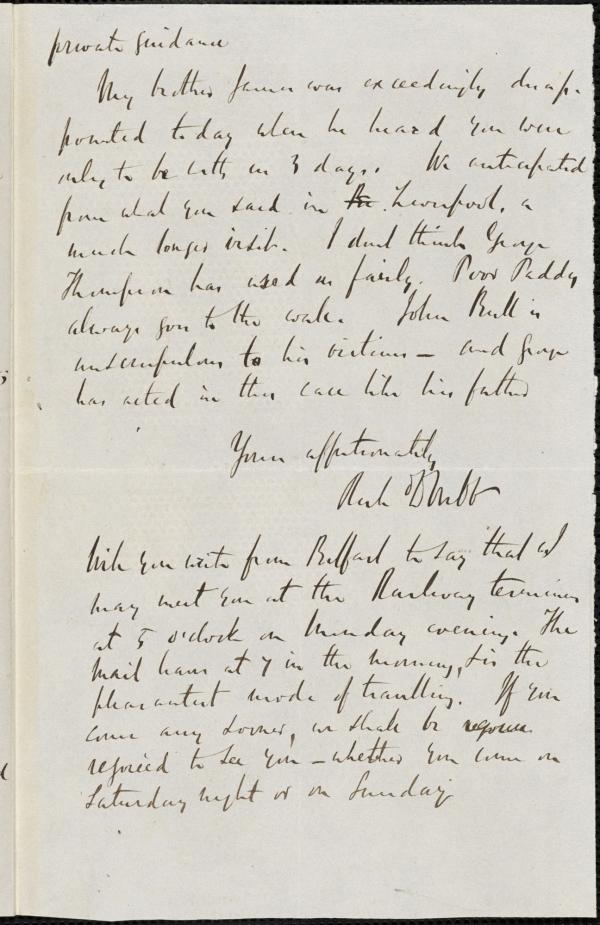 private guidance
My brother James was exceedingly disap-
pointed today when he heard you were
only to be with us 3 days. We anticipated
from what you said in Liverpool, a
much longer visit. I don't think George
Thompson has used us fairly. Poor Paddy
always goes to the wall. John Bull is
unscrupulous to his victims - and George
has acted in this case like his father
Yours affectionately
Rich D Webb
Will you write from Belfast to say that we
may meet you at the Railway terminus
at 5 o'clock on Monday evening. The
Mail leaves at 7 in the morning, tis the
pleasantest mode of travelling. If you
come any sooner, we shall be
rejoiced to see you - whether you come on
Saturday night or on Sunday